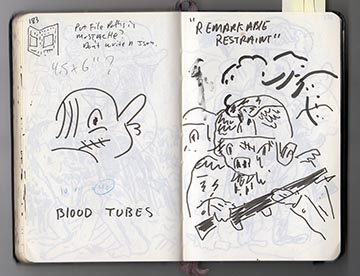 183
Put File Patkis's
mustache?
Don't write a Isan.
4.5 x 6" ?
BLOOD TUBES
"REMARKABLE
RESTRAINT"